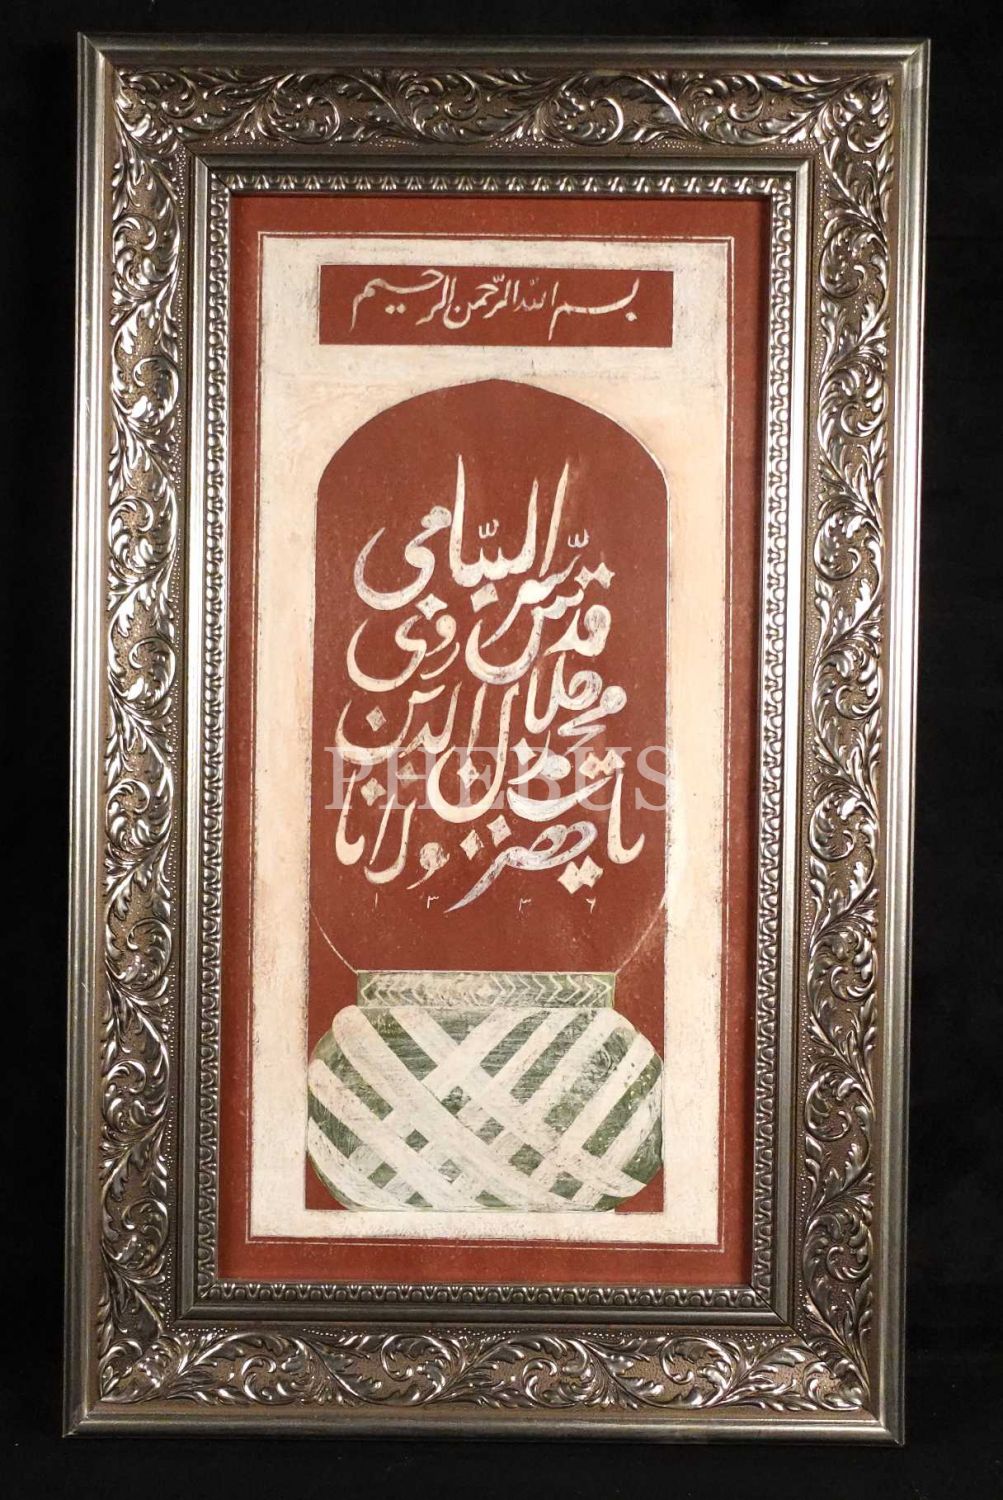 بسم الله الرحمن الرحيم
يا حضرت مولانا
محمد جلال الدين رومى
قدس سره السامى
١٣٣٦
PHEBUS